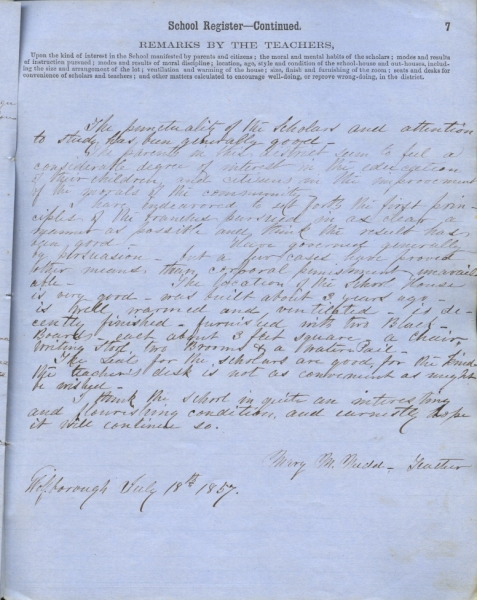 School Register—Continued. 7
REMARKS BY THE TEACHERS,
Upon the kind of interest in the School manifested by parents and citizens; the moral and mental habits of the scholars; modes and results
of instruction pursued; modes and results of moral discipline; location, age, style and condition of the school-house and out-houses, includ-
ing the size and arrangement of the lot; ventilation and warming of the house; size, finish and furnishing of the room; seats and desks for
convenience of scholars and teachers; and other matters calculated to encourage well-doing, or reprove wrong-doing, in the district.
The punctuality of the Scholars and attention
to study has been generally good—
The parents in this district seem to feel a
considerable degree of interest in the education
of their children and citizens in the improvement
of the morals of the community.
I have endeavored to set forth the first prin-
ciples of the branches pursued in as clear a
manner as possible and think the result has
been good — Have governed generally
by persuasion — but a few cases have proved
other means, than corporal punishment unavail
able — The location of the School House
is very good — was built about 3 years ago —
is well warmed and ventilated — is de-
cently finished — furnished with two Black-
Boards each about 3 feet square, a chair,
two Brooms & a Water Pail —
The seats for the scholars are good, for the kind
the teacher's desk is not as convenient as might
be wished —
I think the school in quite an interesting
and flourishing condition, and earnestly hope
it will continue so.
Mary M. — Teacher
July 18th 1857.